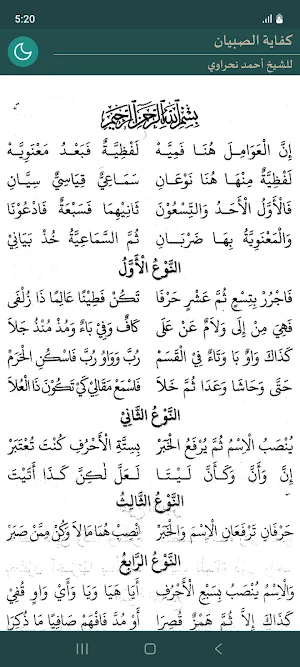 5:20
كفاية الصبيان
للشيخ أحمد نحراوي
بِسْمِ اللَّهِ الرَّحْمَنِ الرَّحِيمِ
إِنَّ الْعَوَامِلَ هُنَا قَمِيَّهْ لَفْظِيَّةٌ فَبَعْدُ مَعْنَوِيَّهْ
لَفْظِيَّةٌ مِنْهَا هُنَا نَوْعَانِ سَمَاعِيٌّ قِيَاسِيٌّ سِيَّانِ
فَالْأَوَّلُ الْأَحَدُ وَالتِّسْعُوْنَ ثَانِيهِمَا فَسَبْعَةٌ فَادْعُوْنَا
وَالْمَعْنَوِيَّةُ بِهَا ضَرْبَانِ ثُمَّ السَّمَاعِيَّةُ خُذْ بَيَانِيْ
النَّوْعُ الْأَوَّلُ
فَاجْرُرْ بِتِسْعٍ ثُمَّ عَشْرٍ حَرْفَا تَكُنْ فَطِيْنًا عَالِمًا ذَا زُلْفَى
فَهِيَ مِنْ إِلَى وَلَامٌ عَنْ عَلَى كَافٌ وَفِيْ بَاءٌ وَمُذْ مُنْذُ جَلَا
كَذَاكَ وَاوٌ بَا وَتَاءٌ فِي الْقَسَمْ رُبَّ وَوَاوُ رُبَّ فَاسْكُنِ الْحَرَمْ
حَتَّى وَحَاشَا وَعَدَا ثُمَّ خَلَا فَلْسَمْعْ مَقَالِيْ كَيْ تَكُوْنَ ذَا الْعُلَا
النَّوْعُ الثَّانِيْ
يُنْصَبُ الْاِسْمُ ثُمَّ يُرْفَعُ الْخَبَرْ بِسِتَّةِ الْأَحْرُفِ كُنْتَ تُعْتَبَرْ
إِنَّ وَأَنَّ وَكَأَنَّ لَيْتَا لَعَلَّ لٰكِنَّ كَذَا أَتَيْتَ
النَّوْعُ الثَّالِثُ
حَرْفَانِ تَرْفَعَانِ الْاِسْمَ وَالْخَبَرْ اِنْصِبْ هُمَا مَالَا وَكُنْ مِمَّنْ صَبَرْ
النَّوْعُ الرَّابِعُ
وَالْاِسْمُ يُنْصَبُ بِسَبْعِ الْأَحْرُفِ أَيَا هَيَا وَيَا وَأَيْ وَاوٍ قُفِيْ
كَذَاكَ إِلَّا ثُمَّ هَمْزٌ قُصِرَا أَوْ مُدَّ فَافْهَمْ صَافِيًا مَا ذُكِرَا